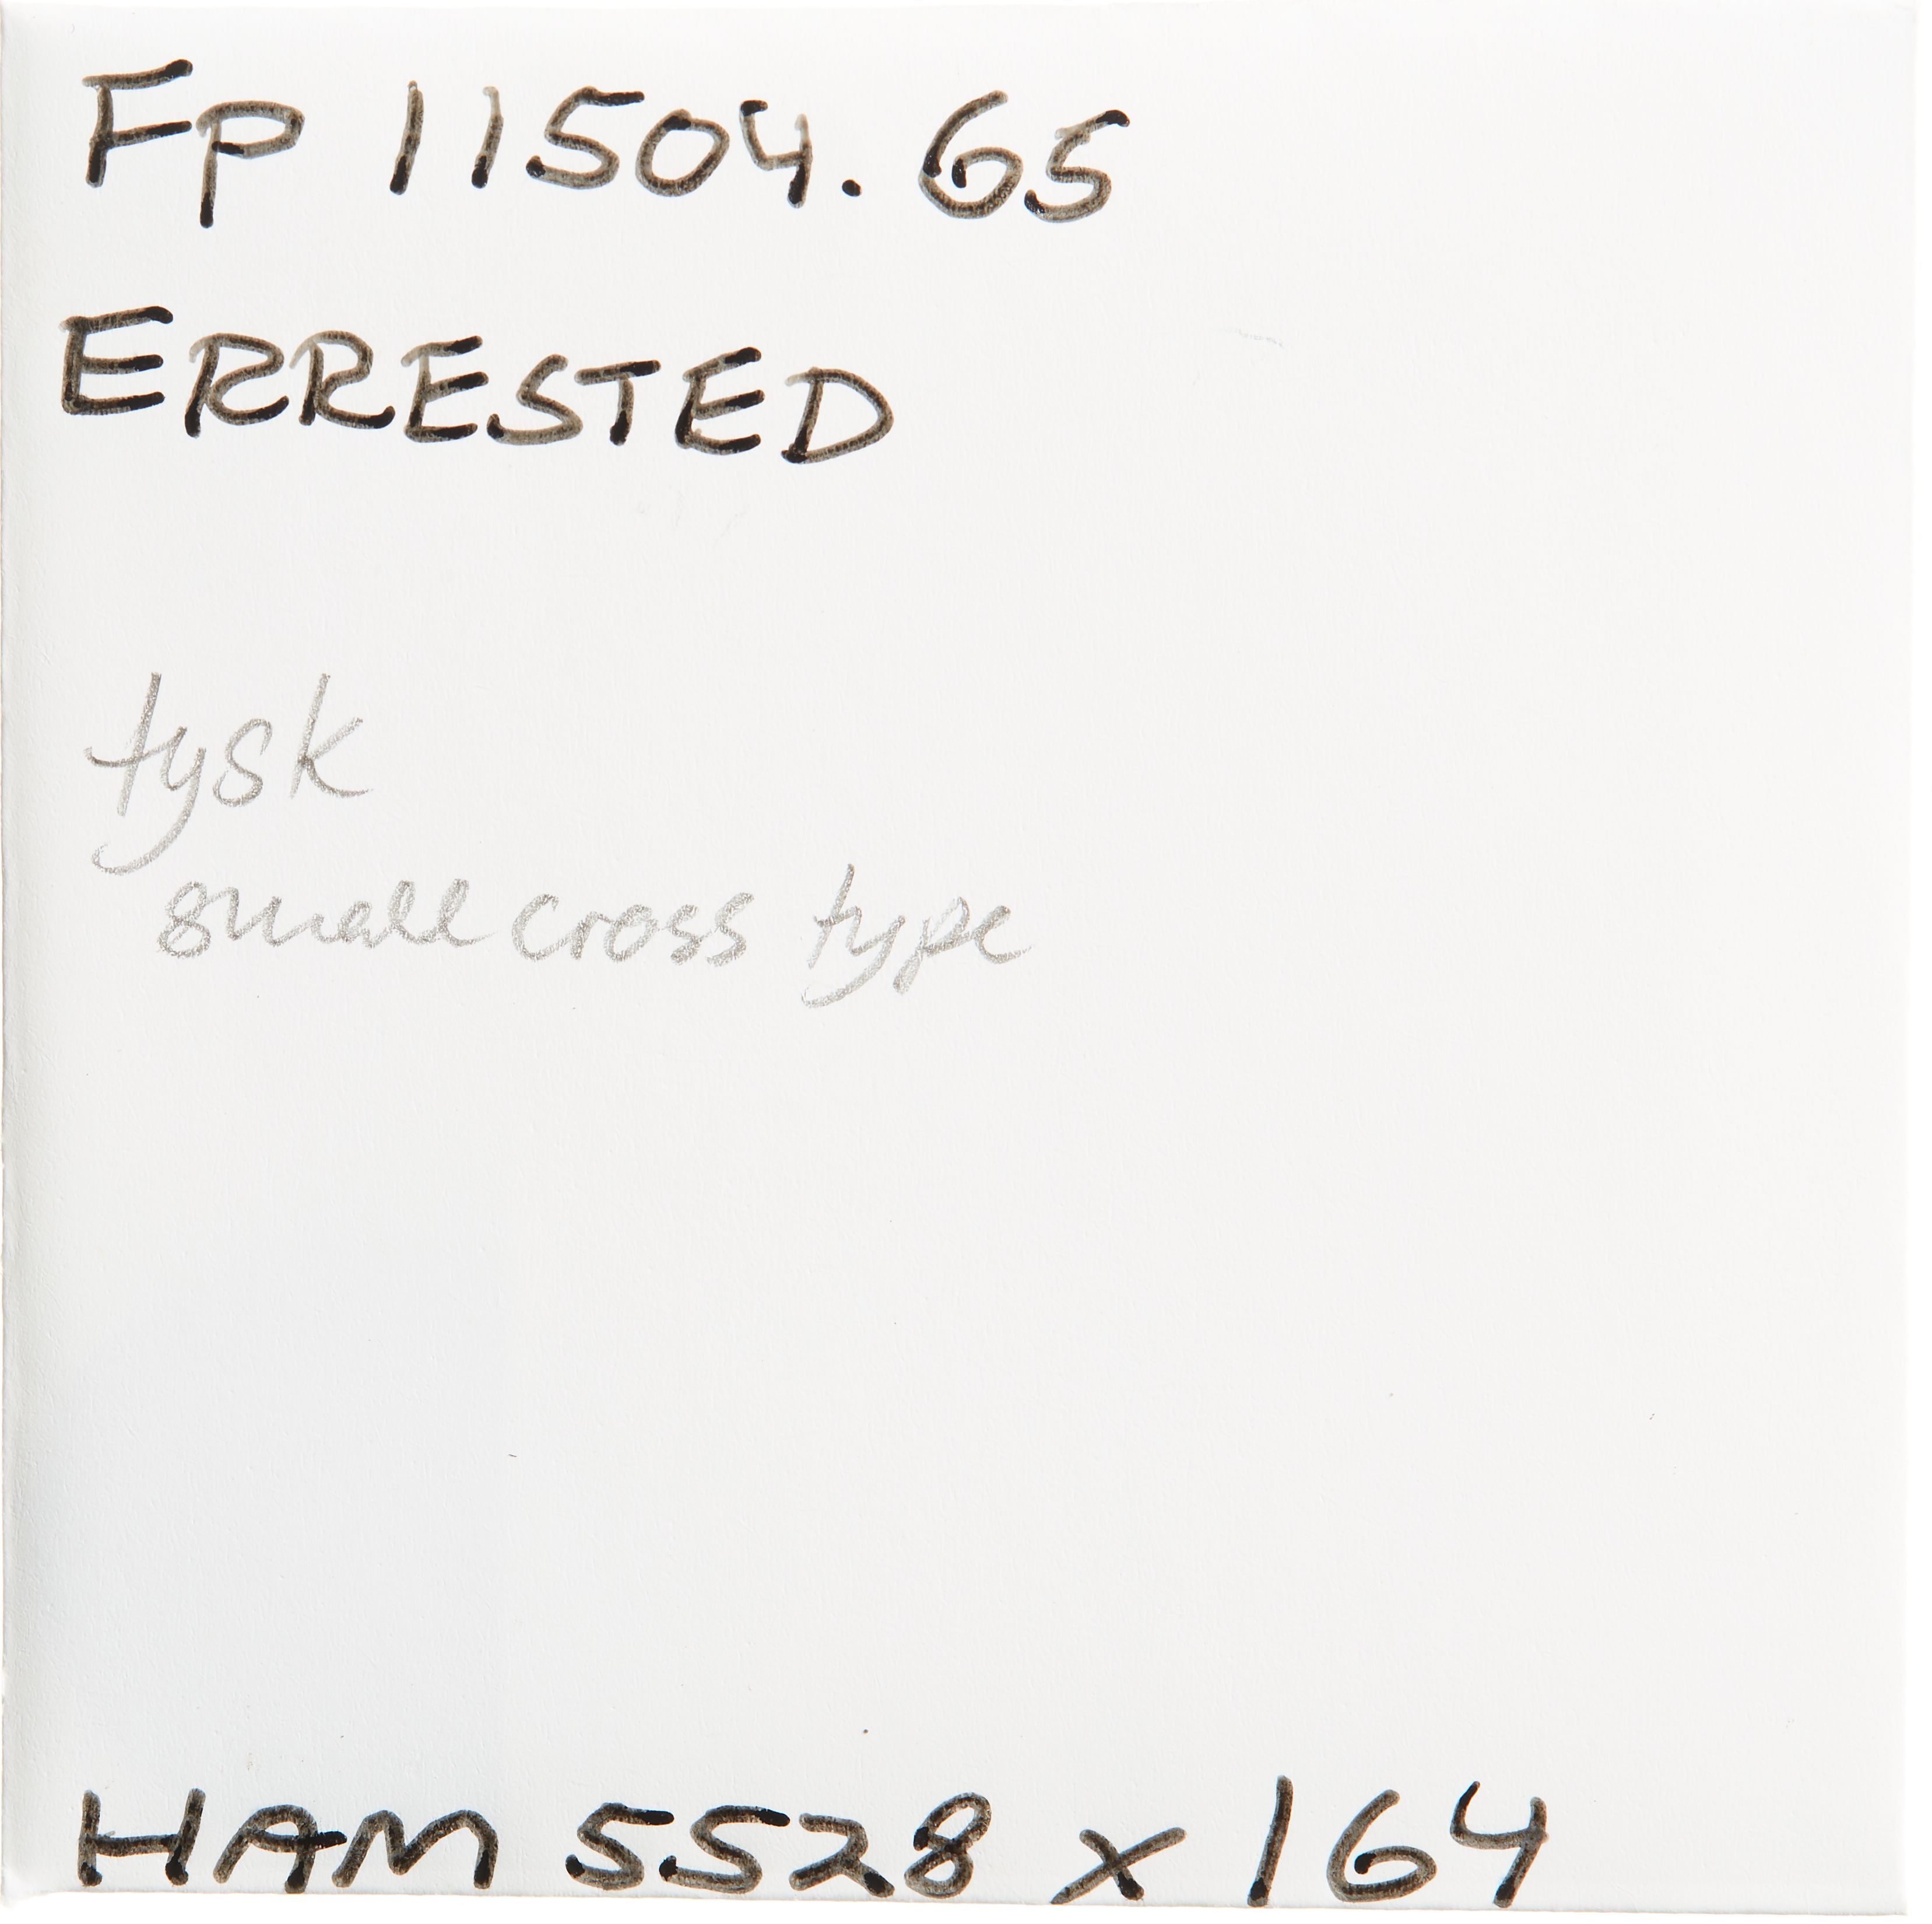 Fp 11504.65
ERRESTED
tysk
small cross type
HAM 5528 x 164